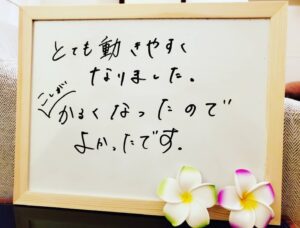 とても動きやすく
なりました。
こしが
かるくなったので
よかったです。